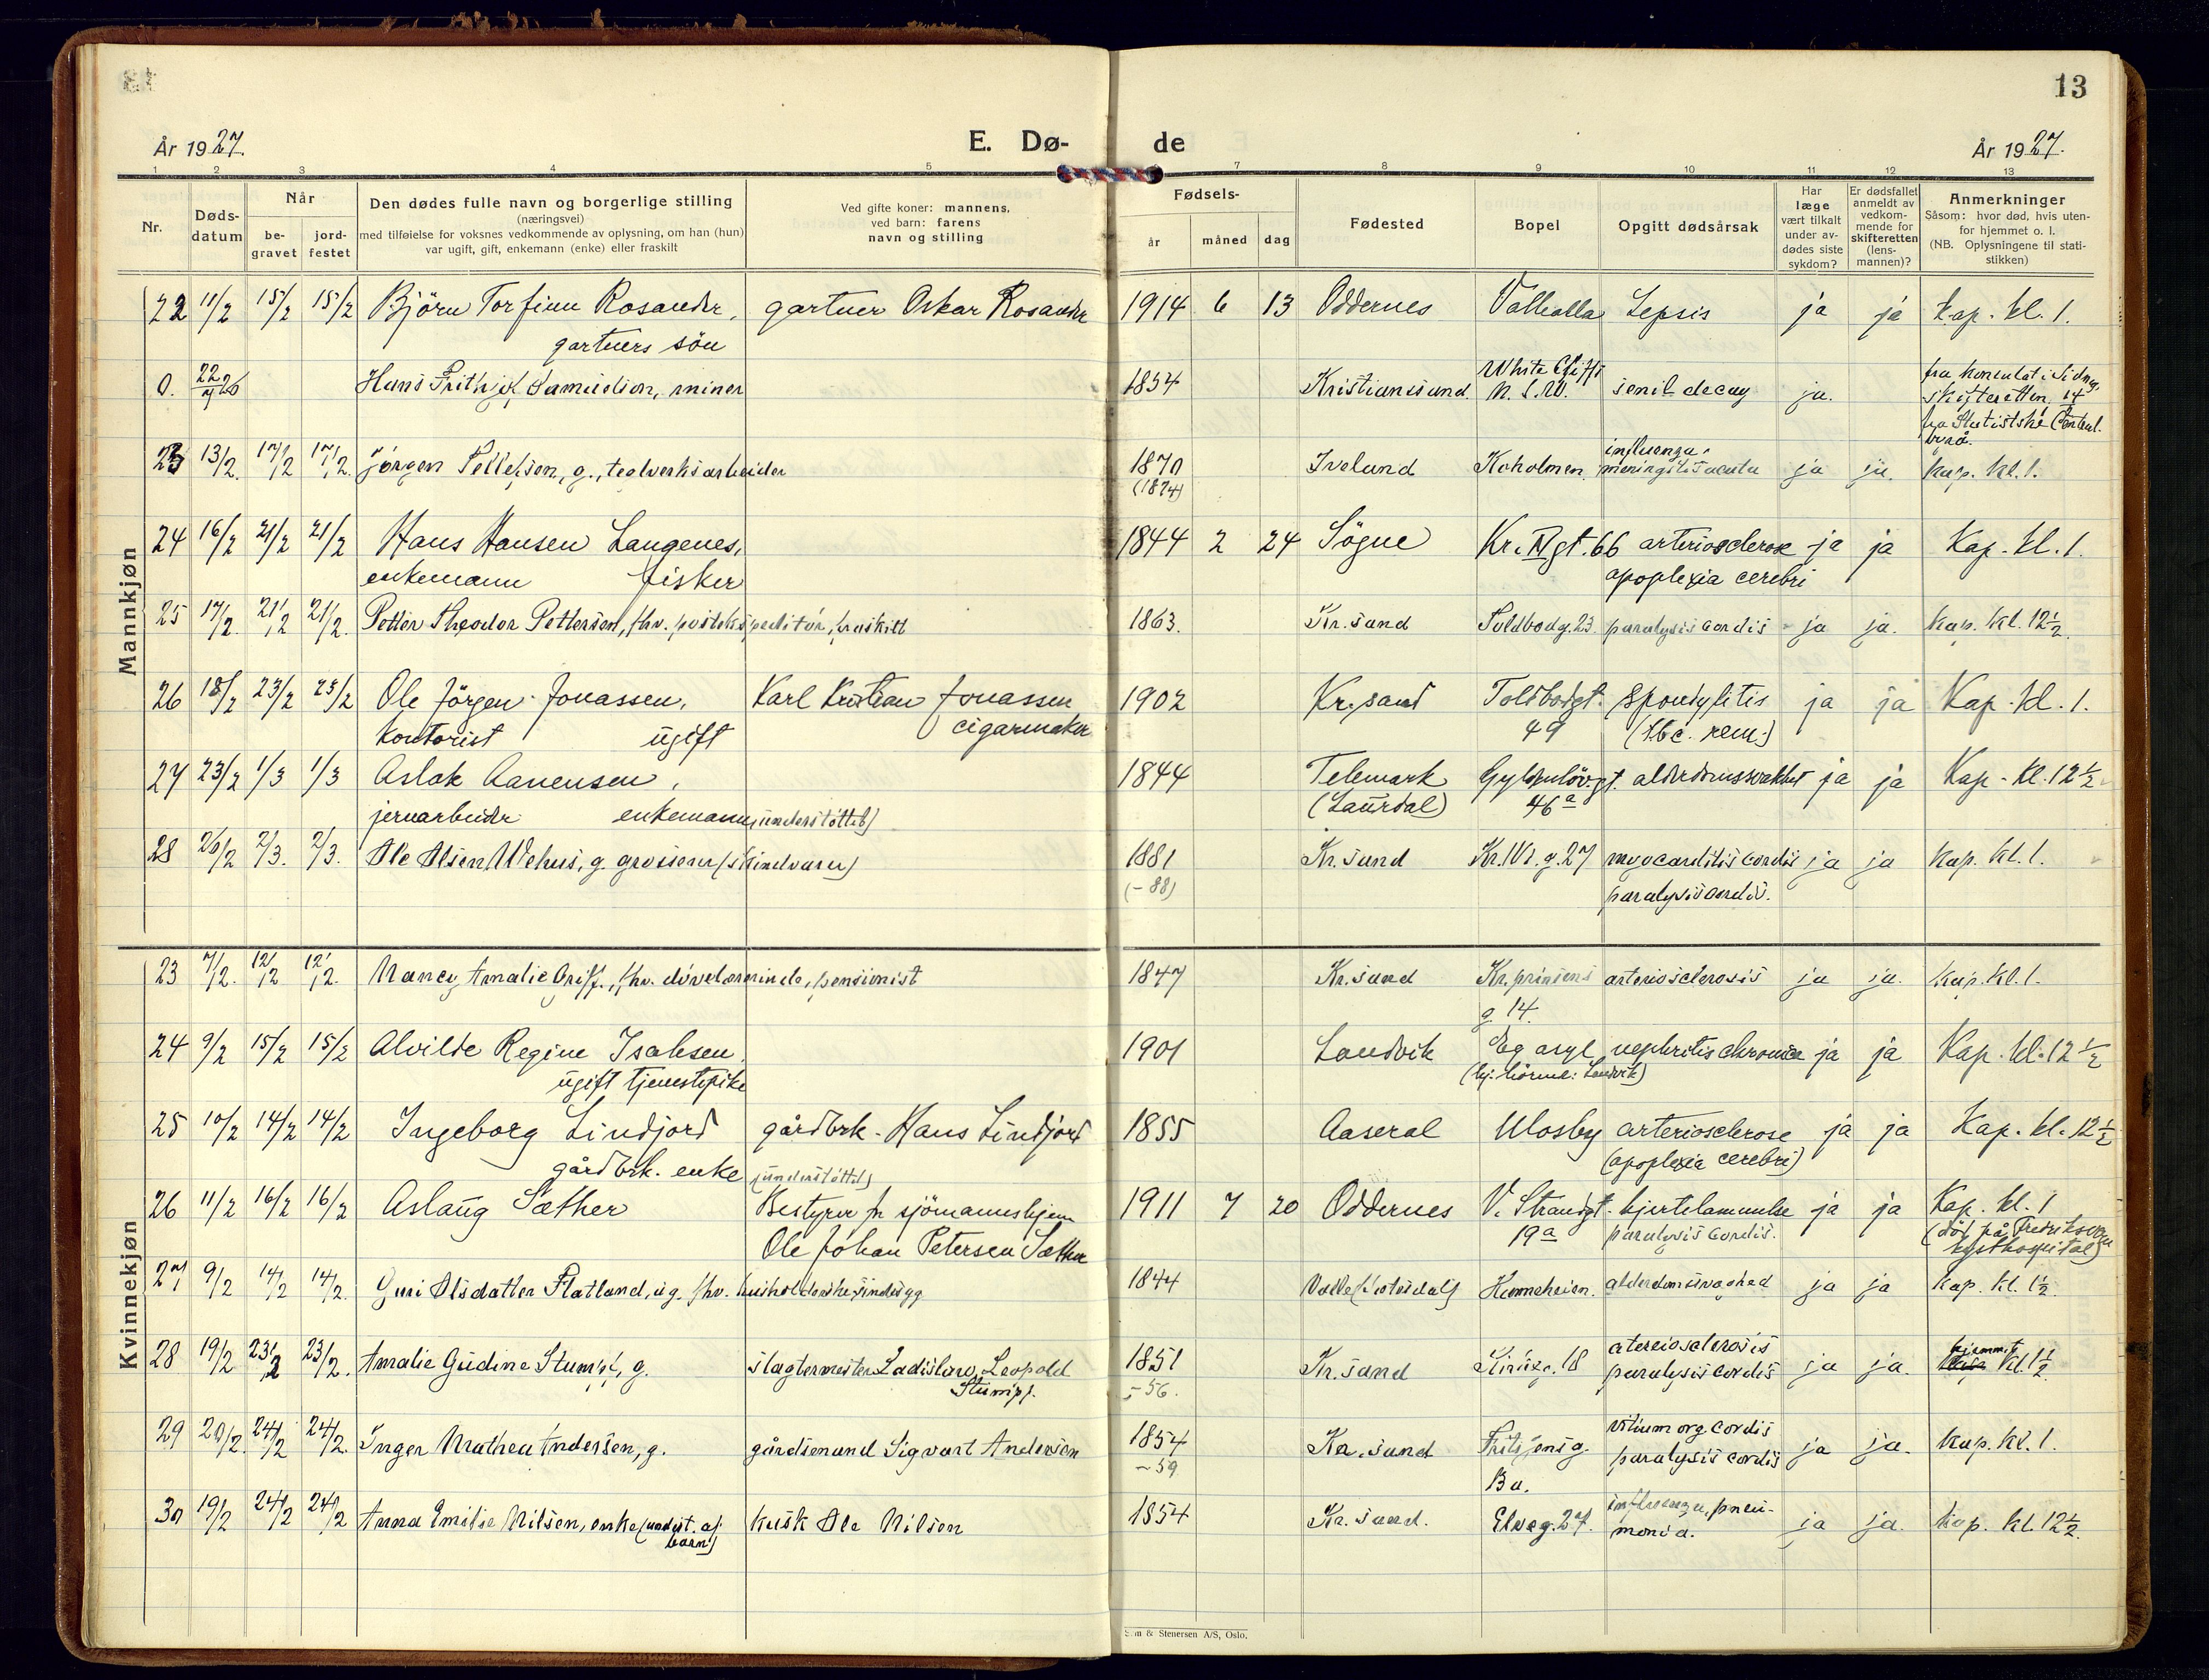 13
År 1927.
E. Dø-
de
År 1927.
1 2 3 4 5 7 8 9 10 11 12 13
Nr.
Døds-
datum
Når
be-
gravet
jord-
festet
Den dødes fulle navn og borgerlige stilling
(næringsvei)
med tilføielse for voksnes vedkommende av oplysning, om han (hun)
var ugift, gift, enkemann (enke) eller fraskilt
Ved gifte koner: mannens,
ved barn: farens
navn og stilling
Fødsels-
år
måned
dag
Fødested
Bopel
Opgitt dødsårsak
Har
læge
vært tilkalt
under av-
dødes siste
sykdom?
Er dødsfallet
anmeldt av
vedkom-
mende for
skifteretten
(lens-
mannen)?
Anmerkninger
Såsom: hvor død, hvis uten-
for hjemmet o. l.
(NB. Oplysningene til stati-
stikken)
Mannkjøn
22 11/2 15/2 15/2 Björn Torfinn Rosander, gartner Oskar Rosander 1914 6 13 Oddernes Valhalla Sepsis ja ja Kap. kl. 1.
gartners sön
0. 22/9 26 Hans Frithjof Samuelson, miner 1854 Kristiansund. White Cliffs N.S.W. senil decay ja. fra konsulat i Sidney,
skifteretten 14
fra Statistiske Central-
byrå.
23 13/2. 17/2 17/2. Jörgen Pellefsen, g., teglverksarbeider 1870 Iveland Koholmen influenza, meningitis acuta ja ja. kap. kl. 1.
(1874)
24 16/2 21/2 21/2 Hans Hansen Langenes, 1844 2 24 Sögne Kr. IV gt. 66 arteriosclerose ja ja Kap. kl. 1.
enkemann fisker apoplexia cerebri
25 17/2. 21/2 21/2. Petter Theodor Pettersen, fhv. postekspeditör, fraskilt 1863. Kr.sand Toldbodg. 23. paralysis cordis ja ja. Kap. kl. 12 1/2.
26 18/2 23/2 23/2 Ole Jörgen Jonassen, Karl Kristian Jonassen 1902 Kr.sand Toldbodgt. Spondylitis ja ja Kap. kl. 1.
Kontorist ugift cigarmaker 49 (tbc. rem.)
27 23/2 1/3 1/3 Aslak Aanensen, 1844 Telemark Gyldenlövgt. alderdomssvakhet ja ja Kap. kl. 12 1/2
jernarbeider enkemann (understöttet) (Laurdal) 46a
28 26/2 2/3. 2/3. Ole Olsen Wehus, g. grosserer (skindvarer) 1881 Kr.sand Kr. IV. g. 27 myocarditis cordis ja ja kap. kl. 1.
(-88) paralysis cordis.
Kvinnekjøn
23 7/2. 12/2 12/2. Nancy Amalie Greiff., fhv. dövelærerinde, pensionist 1847 Kr.sand Kr. prinsens arteriosclerosis ja ja. kap. kl. 1.
g. 14.
24 9/2 15/2 15/2 Alvilde Regine Isaksen, 1901 Landvik Eg asyl nephritis chronica ja ja Kap. kl. 12 1/2
ugift tjenestepike
25 10/2 14/2 14/2 Ingeborg Lindjord gårdbrk. Hans Lindjord 1855 Aaseral Mosby arteriosclerose ja ja Kap. kl. 12 1/2
gårdbrk. enke (understöttet) (apoplexia cerebri)
26 11/2 16/2 16/2 Aslaug Sæther Bestyrer for sjömannshjem 1911 7 20 Oddernes V. Strandgt. hjertelammelse ja ja Kap. kl. 1
Ole Johan Petersen Sæther 19a paralysis cordis. (död på Fredriksvern
kysthospital)
27 9/2 14/2 14/2. Guri Olsdatter Flatland, ug. fhv. husholderske 1844 Valle (Setesdal) Hanneheien. alderdomssvaghed ja ja kap. kl. 1 1/2.
28 19/2 23/2 23/2. Amalie Gudine Stumpf, g. slagtermester Ladislaw Leopold 1851 Kr.sand Kirkeg. 18 atereiosclerosis ja ja. hjemmet kl. 1 1/2.
Stumpf. -56. paralysis cordis
29 20/2. 24/2 24/2. Inger Mathea Andersen, g. gårdsmand Sigvart Andersen 1854 Kr.sand vitium org. cordis ja ja. kap. kl. 1.
-59 paralysis cordis
30 19/2 24/2 24/2 Anna Emilie Nilsen, enke (underst. af kusk Ole Nilsen 1854 Kr.sand. Elveg. 27. influenza, pneu- ja ja. kap. kl. 12 1/2.
barn) monia.
& Stenersen A/S, Oslo.